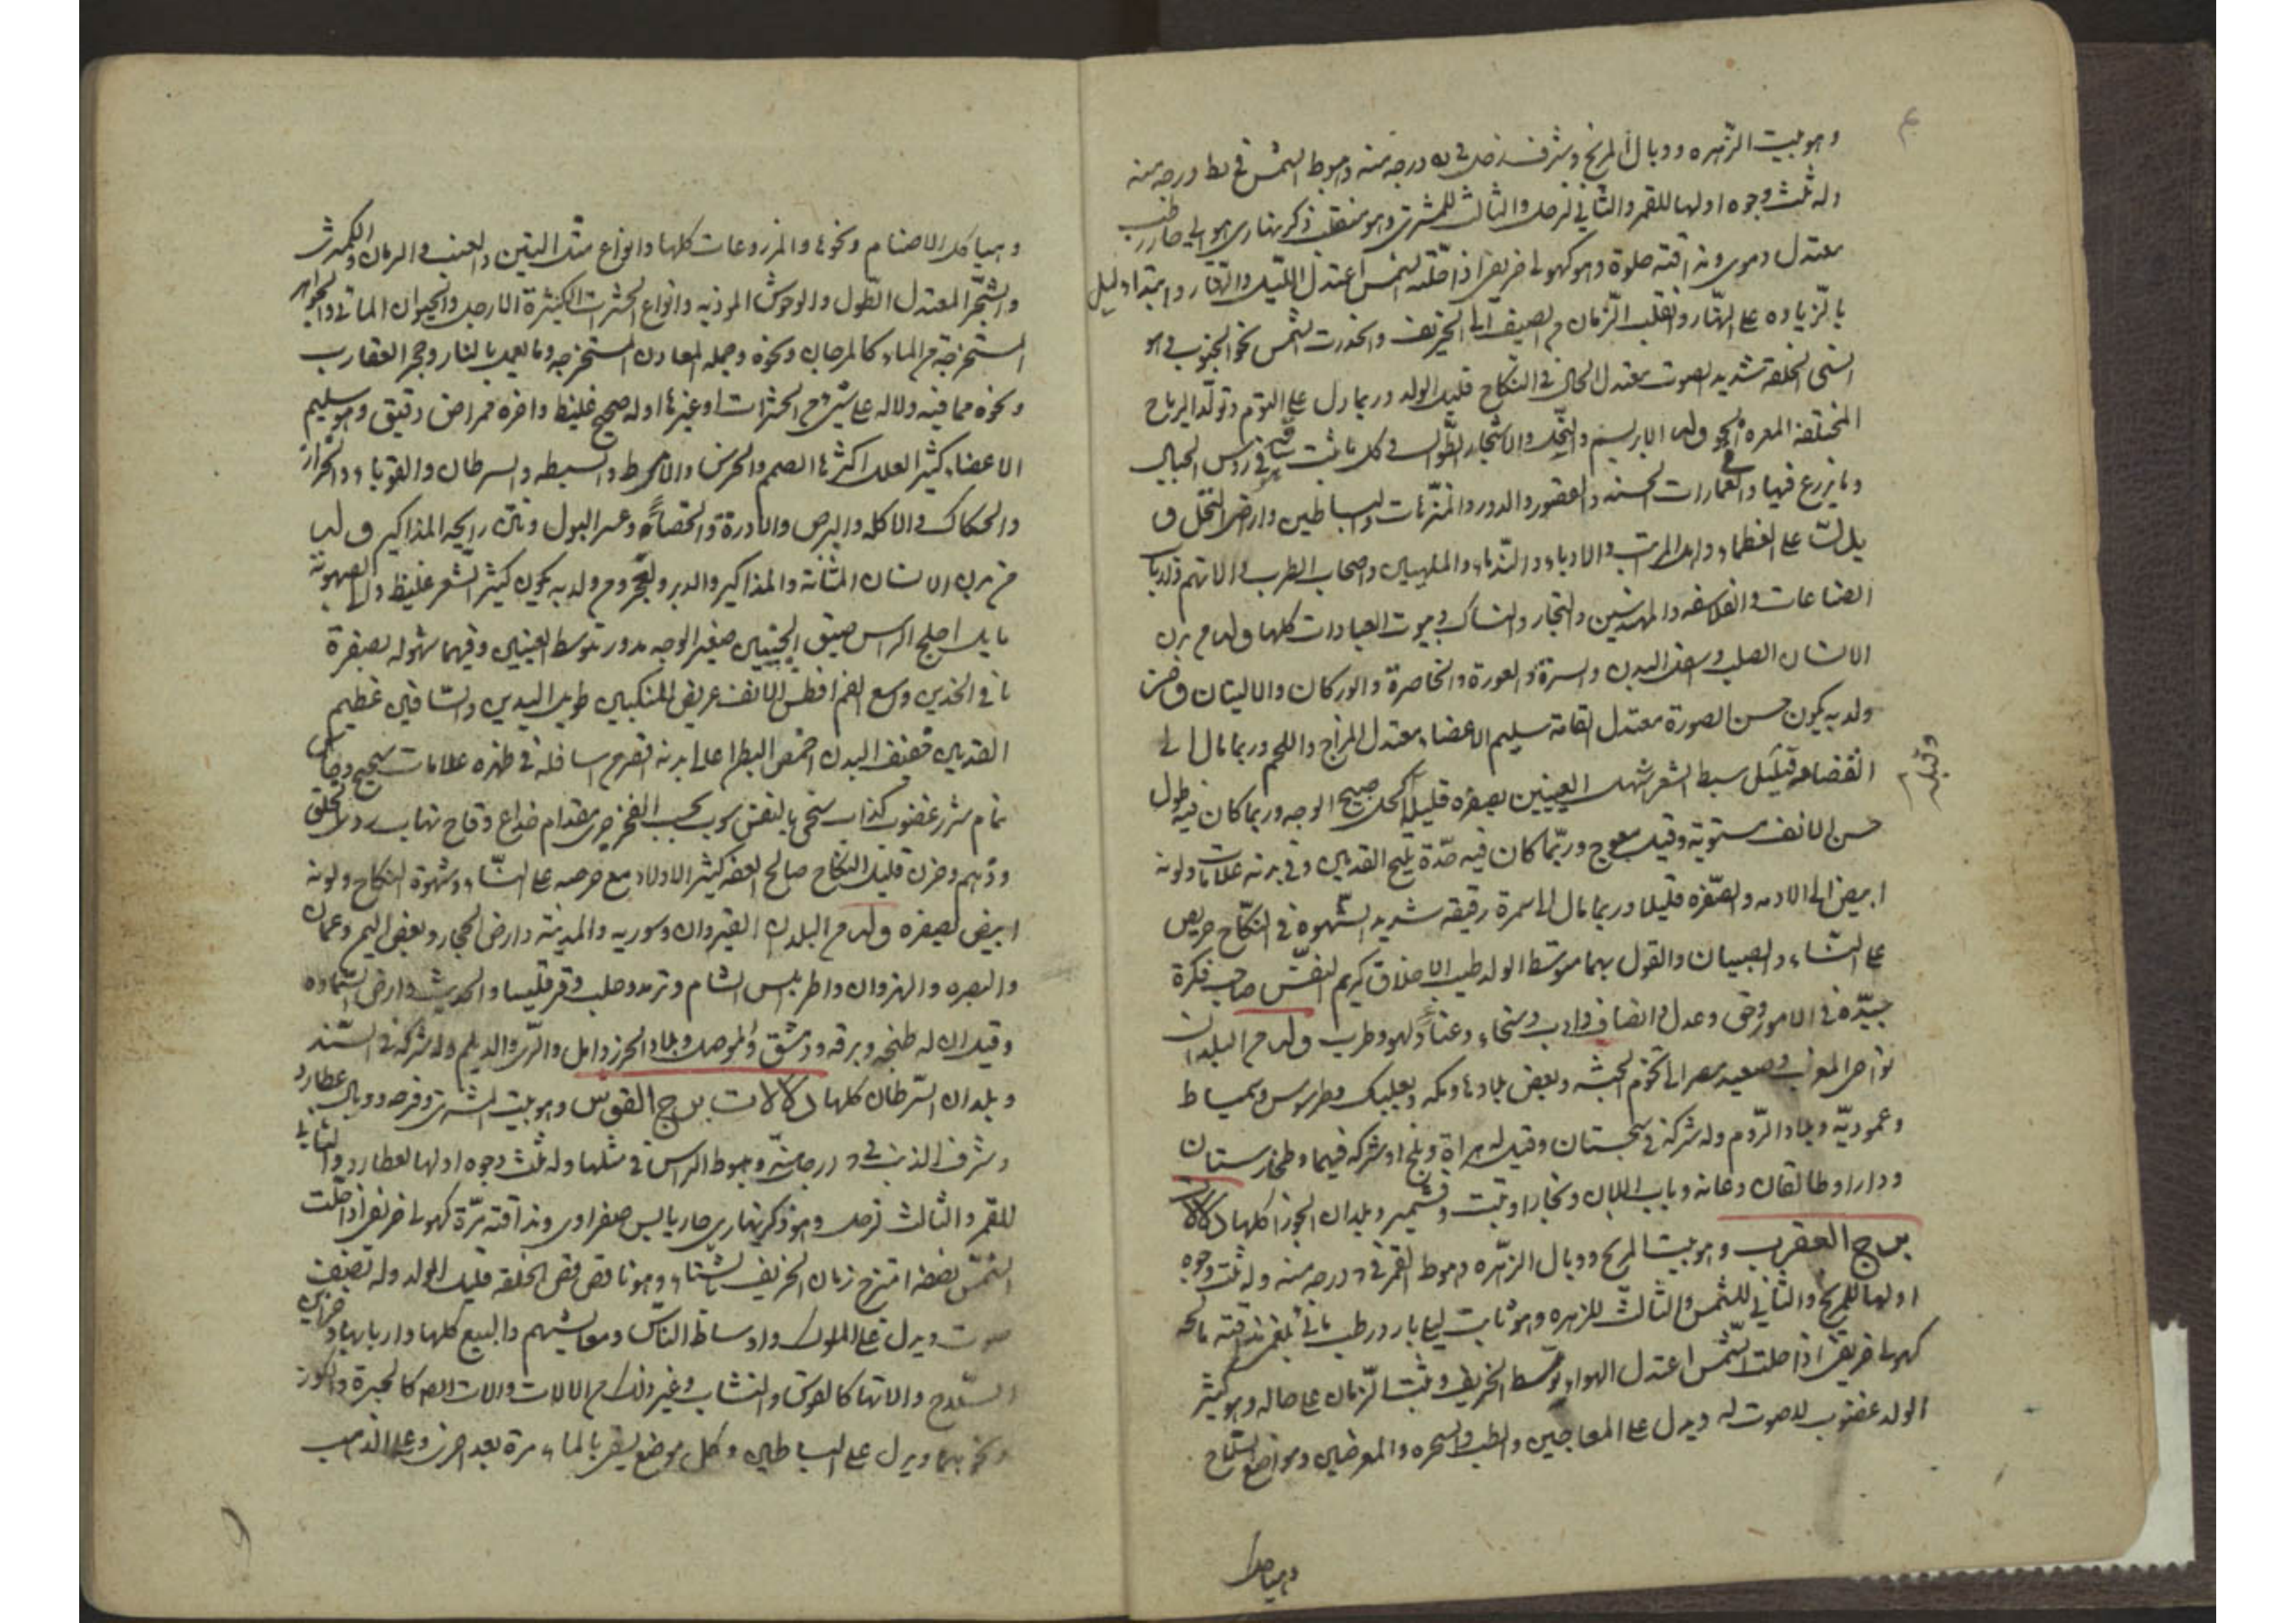 وهو بيت الزهره ووبال المريخ وشرف زحل في درجه منه وهبوط الشمس في يط درجه منه
وله ثلث وجوه اولها للقمر والثاني لزحل والثالث للمشتري وهو منقلب ذكر نهاري هوايي حار رطب
معتدل دموي مذاقته حلوة وهو كهولي خريفي اذا حلته الشمس اعتدل الليل والنهار وابتدا الليل
بالزياده على النهار وانقلب الزمان من الصيف الى الخريف وانحدرت الشمس نحو الجنوب وهو
الخلقة شديد الصوت معتدل الحال في النكاح قليل الولد وربما دل على التوم وتولد الرياح
المختلفة وله الابريسم والنخل والاشجار الطوال وكل ما ينبت في روس الجبال
وما يزرع فيها والعمارات الحسنه والقصور والدور والمتنزهات والبساطين وارض النخل و
يدل على العظماء واهل المراتب والادباء والندماء والملهيين واصحاب الطرب والاتهم وارباب
الصناعات والفلاسفه والمهندسين والتجار والنساك وبيوت العبادات كلها وله من بدن
الانسان الصلب واسفل البدن والسرة والعورة والخاصرة والوركان والاليتان ومن
ولد به يكون حسن الصورة معتدل القامة سليم الاعضاء معتدل المزاج واللحم وربما مال الى
القضافه قليل سبط الشعر اشهل العينين بصفره قليلا اكحل صبيح الوجه وربما كان فيه طول
حسن الانف مستويه وقيل معوج وربما كان فيه حدة مليح القدمين وفي بدنه علامات ولونه
ابيض الى الادمه والصفره قليلا وربما مال الى سمرة رقيقه شديد الشهوة في النكاح حريص
على النساء والصبيان والقول بهما متوسط الولد طيب الاخلاق كريم النفس صاحب فكرة
جيدة في الامور وحق وعدل وانصاف وادب وسخاء وغناء ولهو وطرب وله من البلدان
نواحي المغرب وصعيد مصر الى تخوم الحبشه وبعض بلادها ومكه وبعلبك وطرسوس وسميساط
وعموريه وبلاد الروم وله شركة في سجستان وقيل له هراة وبلخ او شركه فيهما وطخارستان
ودارا وطالقان وعانه وباب اللان وبخارا وتبت وقشمير وبلدان الجوزا كلها دلالات
برج العقرب وهو بيت المريخ ووبال الزهره وهبوط القمر في درجه منه وله ثلث وجوه
اولها للمريخ والثاني للشمس والثالث للزهره وهو ثابت ليلي بارد رطب مائي بلغمي مذاقته مالحه
كهولي خريفي اذا حلت الشمس اعتدل الهوا وتوسط الخريف وثبت الزمان على حاله وهو كثير
الولد غضوب لا صوت له ويدل على المعاجين والطب والسحره والمعرضين ومواضع السلاح
وهياكل
وقيل
وهياكل الاصنام ونحوها والمزروعات كلها وانواع مثل التين والعنب والرمان والكمثرى
والشجر المعتدل الطول والوحوش الموذيه وانواع الحشرات الكثيرة الارجل والحيوان المائي والجواهر
المستخرجة من الماء كالمرجان ونحوه وجمله المعادن المستخرجه وما يعمل بالنار وحجر العقارب
ونحوه مما فيه دلاله على شيء من الحشرات او غيرها اوله صحيح غليظ واخره ممراض دقيق وهو سليم
الاعضاء كثير العلل اكثرها الصمم والخرس والسرطان والقوباء والحزاز
والحكاك والاكله والبرص والادرة والحصاة وعسر البول ونتن رايحه المذاكير وله
من بدن الانسان المثانة والمذاكير والدبر والعجز ومن ولد به يكون كثير الشعر غليظ والى الصهوبة
مايل اجلح الراس ضيق الجبين صغير الوجه مدور متوسط العينين وفيهما شهوله بصفرة
الخدين واسع الفم افطس الانف عريض المنكبين طويل اليدين والساقين عظيم
القدمين قضيف البدن اخمص البطن اعالي بدنه اقصر من اسافله في ظهره علامات
نمام شرير غضوب كذاب سخي بالنفس يحب الفخر جرى مقدام خداع وقاح نهاب ردى الخلق
وذو هم وحزن قليل النكاح صالح العفه كثير الاولاد مع حرصه على النساء وشهوة النكاح ولونه
ابيض بصفره وله من البلدان القيروان وسوريه والمدينة وارض الحجاز وبعض اليمن وعمان
والبصره والنهروان واطرابلس الشام وتدمر وحلب وقرقيسيا والحديث وارض السماوه
وقيل ان له طنجه وبرقه ودمشق والموصل وبلاد الخزر وامل والري والديلم وله شركة في السند
وبلدان السرطان كلها دلالات برج القوس وهو بيت المشتري وفرحه ووبال عطارد
وشرف الذنب في درجة منه وهبوط الراس في مثلها وله ثلث وجوه اولها لعطارد والثاني
للقمر والثالث لزحل وهو ذكر نهاري حار يابس صفراوي ومذاقته مرة كهولي خريفي اذا حلت
الشمس نصفه امتزج زمان الخريف بالشتاء وهو ناقص الخلقة قليل الولد وله نصف
صوت ويدل على الملوك واوساط الناس ومعايشهم والبيع كلها واربابها
السلاح والاتها كالقوس والنشاب وغير ذلك من الالات والات الصم كالمحبرة والكوز
ونحوهما ويدل على البساطين وكل موضع يسقى بالماء مرة بعد اخرى وعلى الذهب